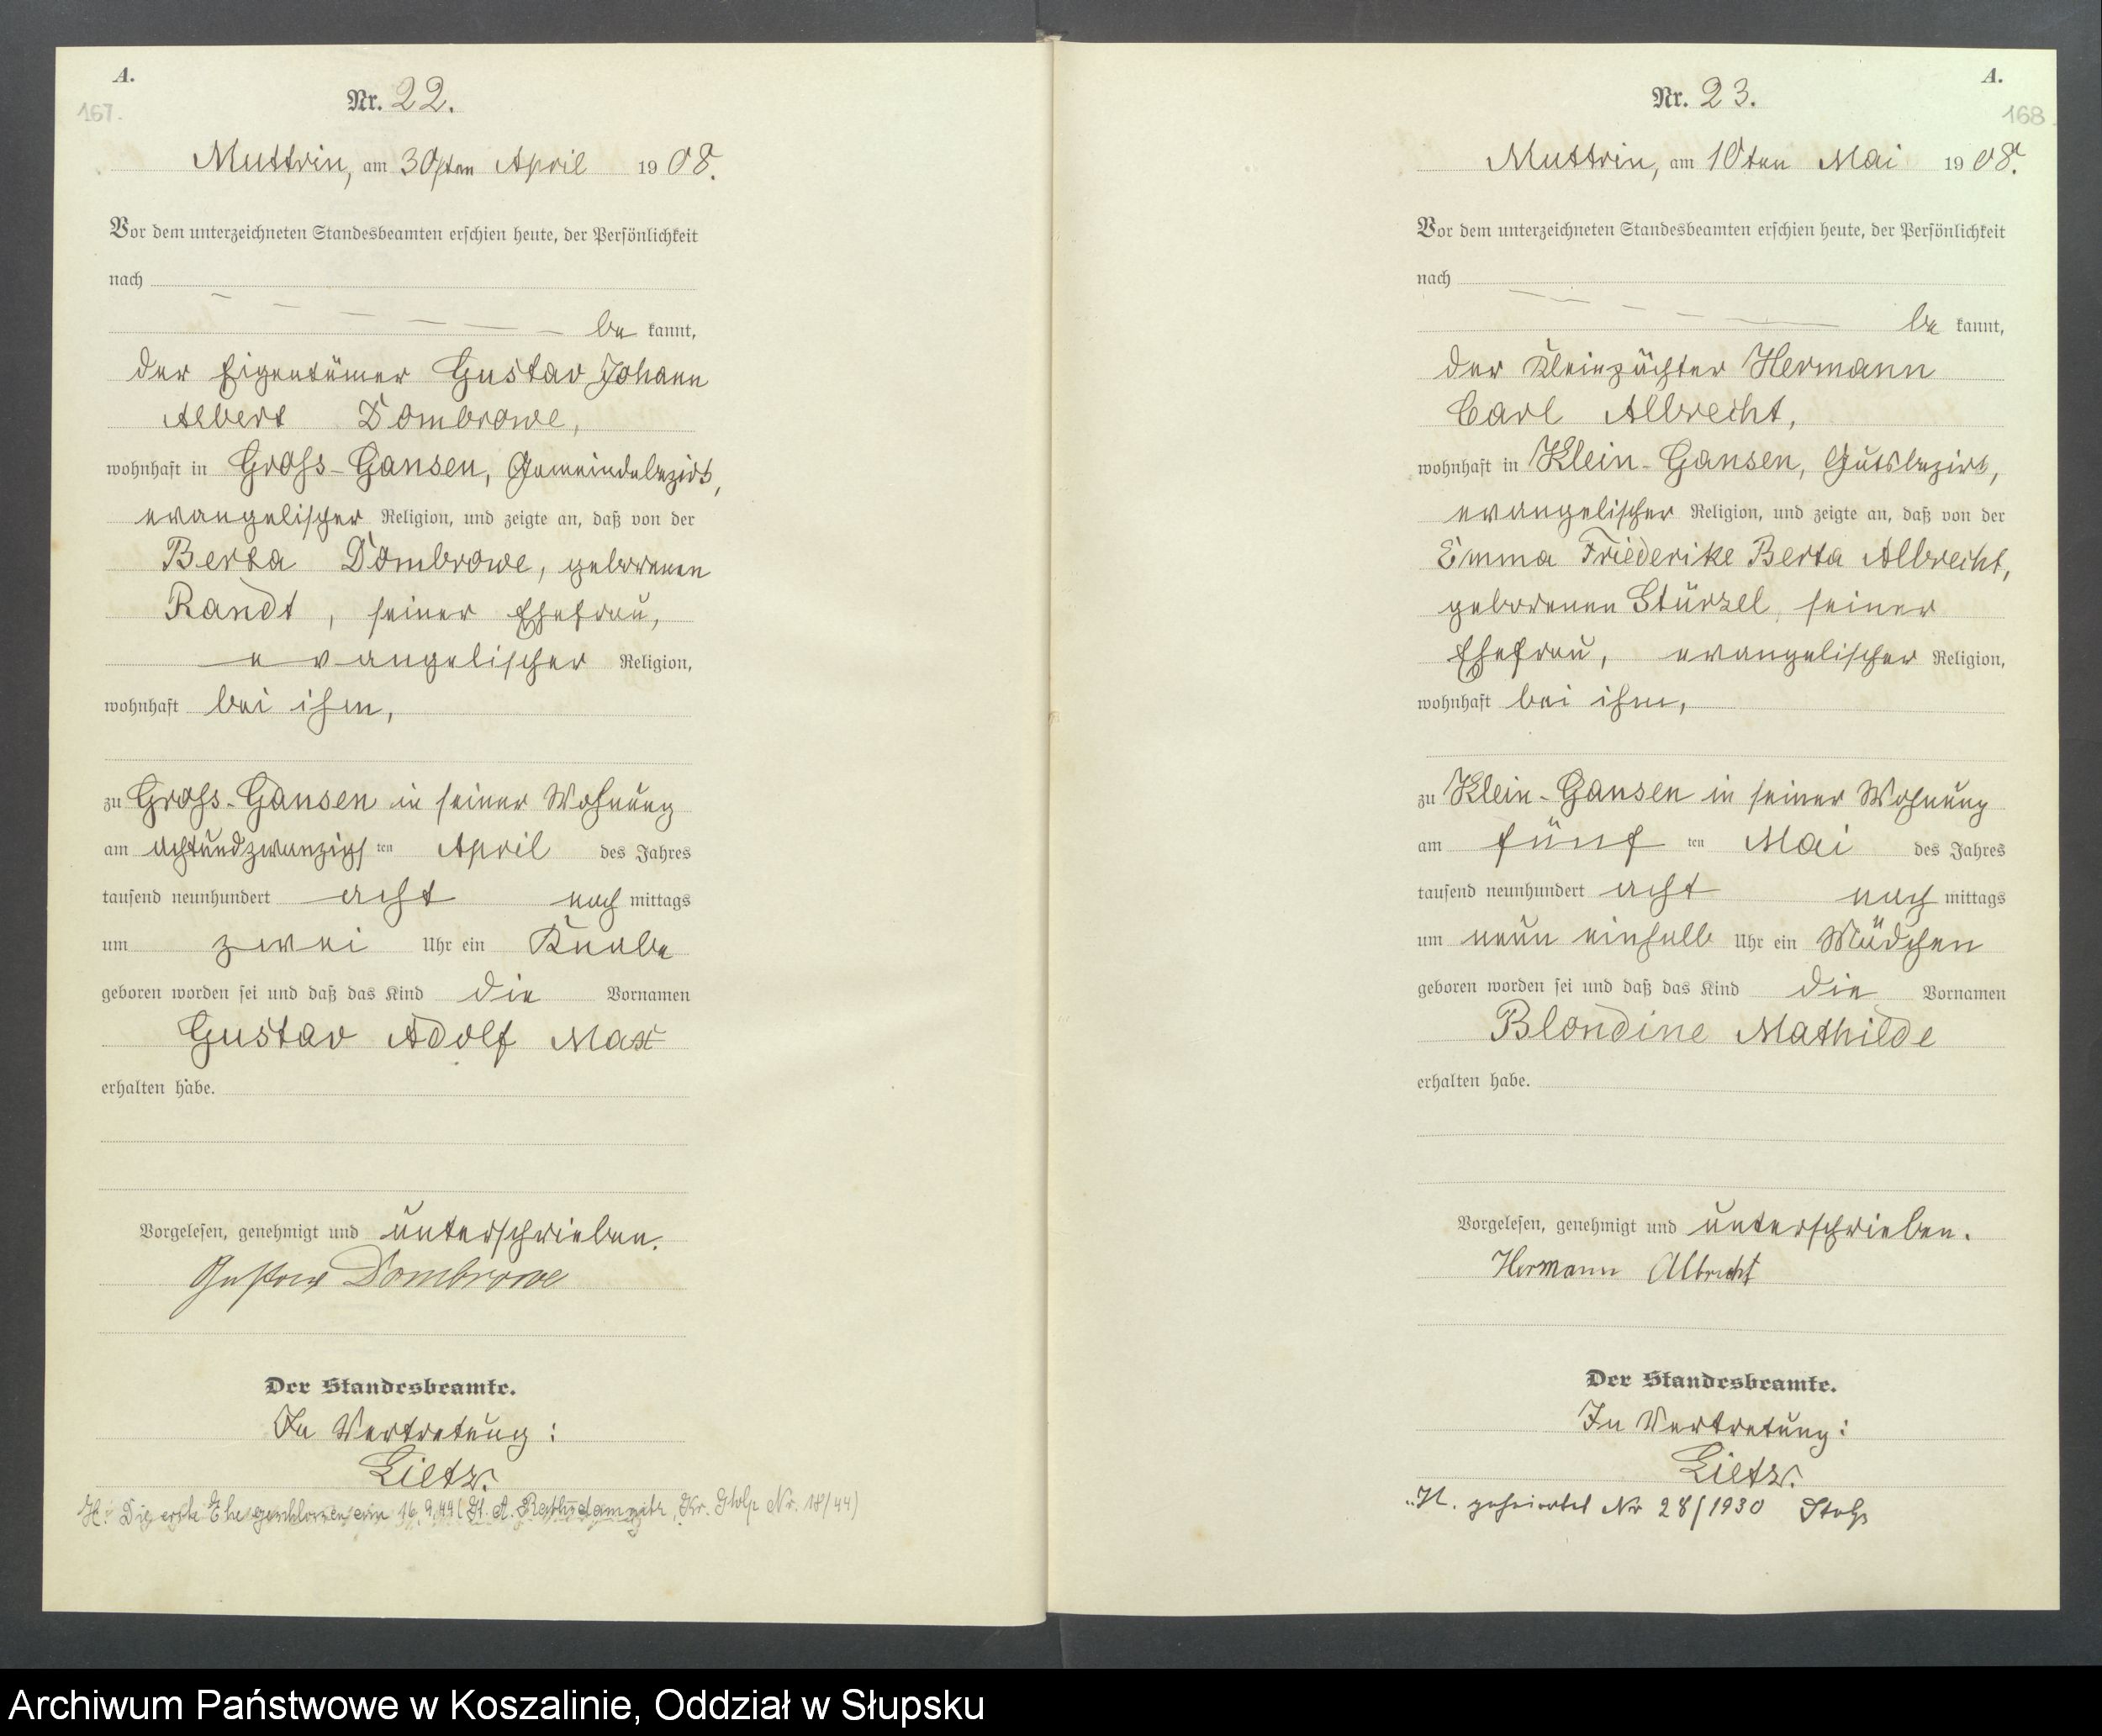 A.
167.
Nr. 22.
Muttrin, am 30sten April 1908.
Vor dem unterzeichneten Standesbeamten erschien heute, der Persönlichkeit
nach
be kannt,
der Eigentümer Gustav Johann
Albert Dombrowe,
wohnhaft in Gross-Gansen, Gemeindebezirk,
evangelischer Religion, und zeigte an, daß von der
Berta Dombrowe, geborenen
Randt, seiner Ehefrau,
evangelischer Religion,
wohnhaft bei ihm,
zu Gross-Gansen in seiner Wohnung
am achtundzwanzigsten April des Jahres
tausend neunhundert acht nachmittags
um zwei Uhr ein Knabe
geboren worden sei und daß das Kind die Vornamen
Gustav Adolf Max
erhalten habe.
Vorgelesen, genehmigt und unterschrieben.
Gustav Dombrowe
Der Standesbeamte.
In Vertretung:
Lietz.
H: Die erste Ehe geschlossen am 16.9.44 (St. A. Rathsdamnitz, Kr. Stolp Nr. 18/44)
A.
168.
Nr. 23.
Muttrin, am 10ten Mai 1908.
Vor dem unterzeichneten Standesbeamten erschien heute, der Persönlichkeit
nach
be kannt,
der Kleinpächter Hermann
Carl Albrecht,
wohnhaft in Klein-Gansen, Gutsbezirk,
evangelischer Religion, und zeigte an, daß von der
Emma Friederike Berta Albrecht,
geborenen Stürzel, seiner
Ehefrau, evangelischer Religion,
wohnhaft bei ihm,
zu Klein-Gansen in seiner Wohnung
am fünf ten Mai des Jahres
tausend neunhundert acht nachmittags
um neun einhalb Uhr ein Mädchen
geboren worden sei und daß das Kind die Vornamen
Blondine Mathilde
erhalten habe.
Vorgelesen, genehmigt und unterschrieben.
Hermann Albrecht
Der Standesbeamte.
In Vertretung:
Lietz.
H. geheiratet Nr 28/1930 Stolp
Archiwum Państwowe w Koszalinie, Oddział w Słupsku